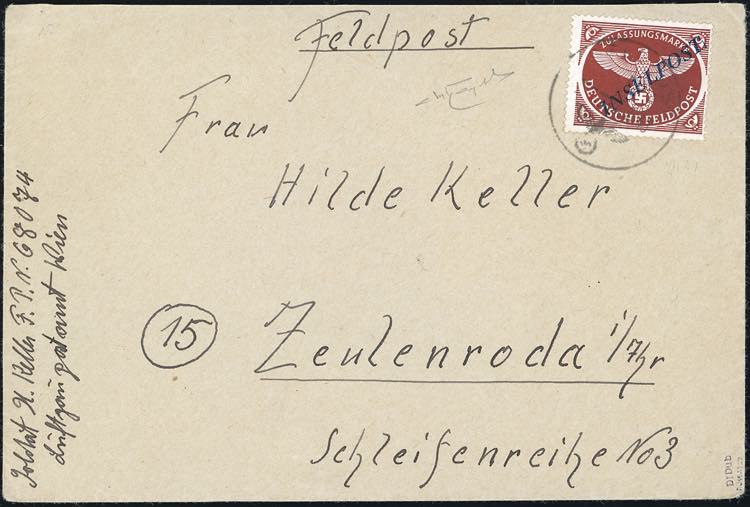 Feldpost
ZULASSUNGSMARKE
INSELPOST
DEUTSCHE FELDPOST
Frau
Hilde Keller
15
Zeulenroda i/Thr
Schleifenreihe No 3
Soldat H. Keller F. P. N. 68074
Luftgaupostamt Wien